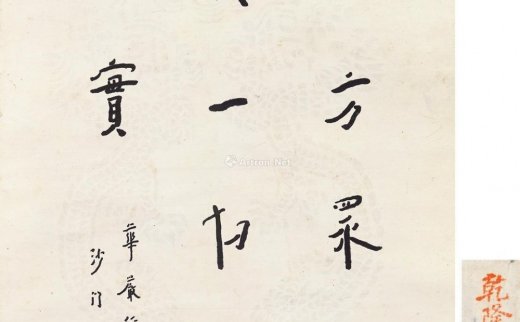 方眾
一切
實
華嚴
沙門
Artron.Net
乾隆